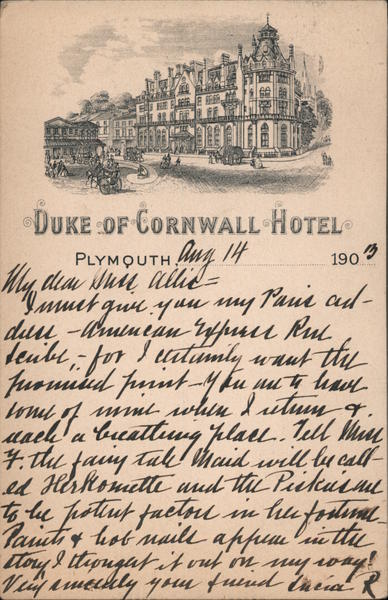 DUKE OF CORNWALL HOTEL
PLYMOUTH, Aug 14 1903
My dear Miss Allis =
I must give you my Paris ad-
dress - American Express Rue
Scribe, - for I certainly want the
promised print - You are to have
some of mine when I return &
reach a breathing place. Tell Miss
F. the fairy tale Maid will be call-
ed Herkomette and the Piskies are
to be potent factors in her fortune
Paints & hob nails appear in the
story I thought it out on my way!
Very sincerely your friend R